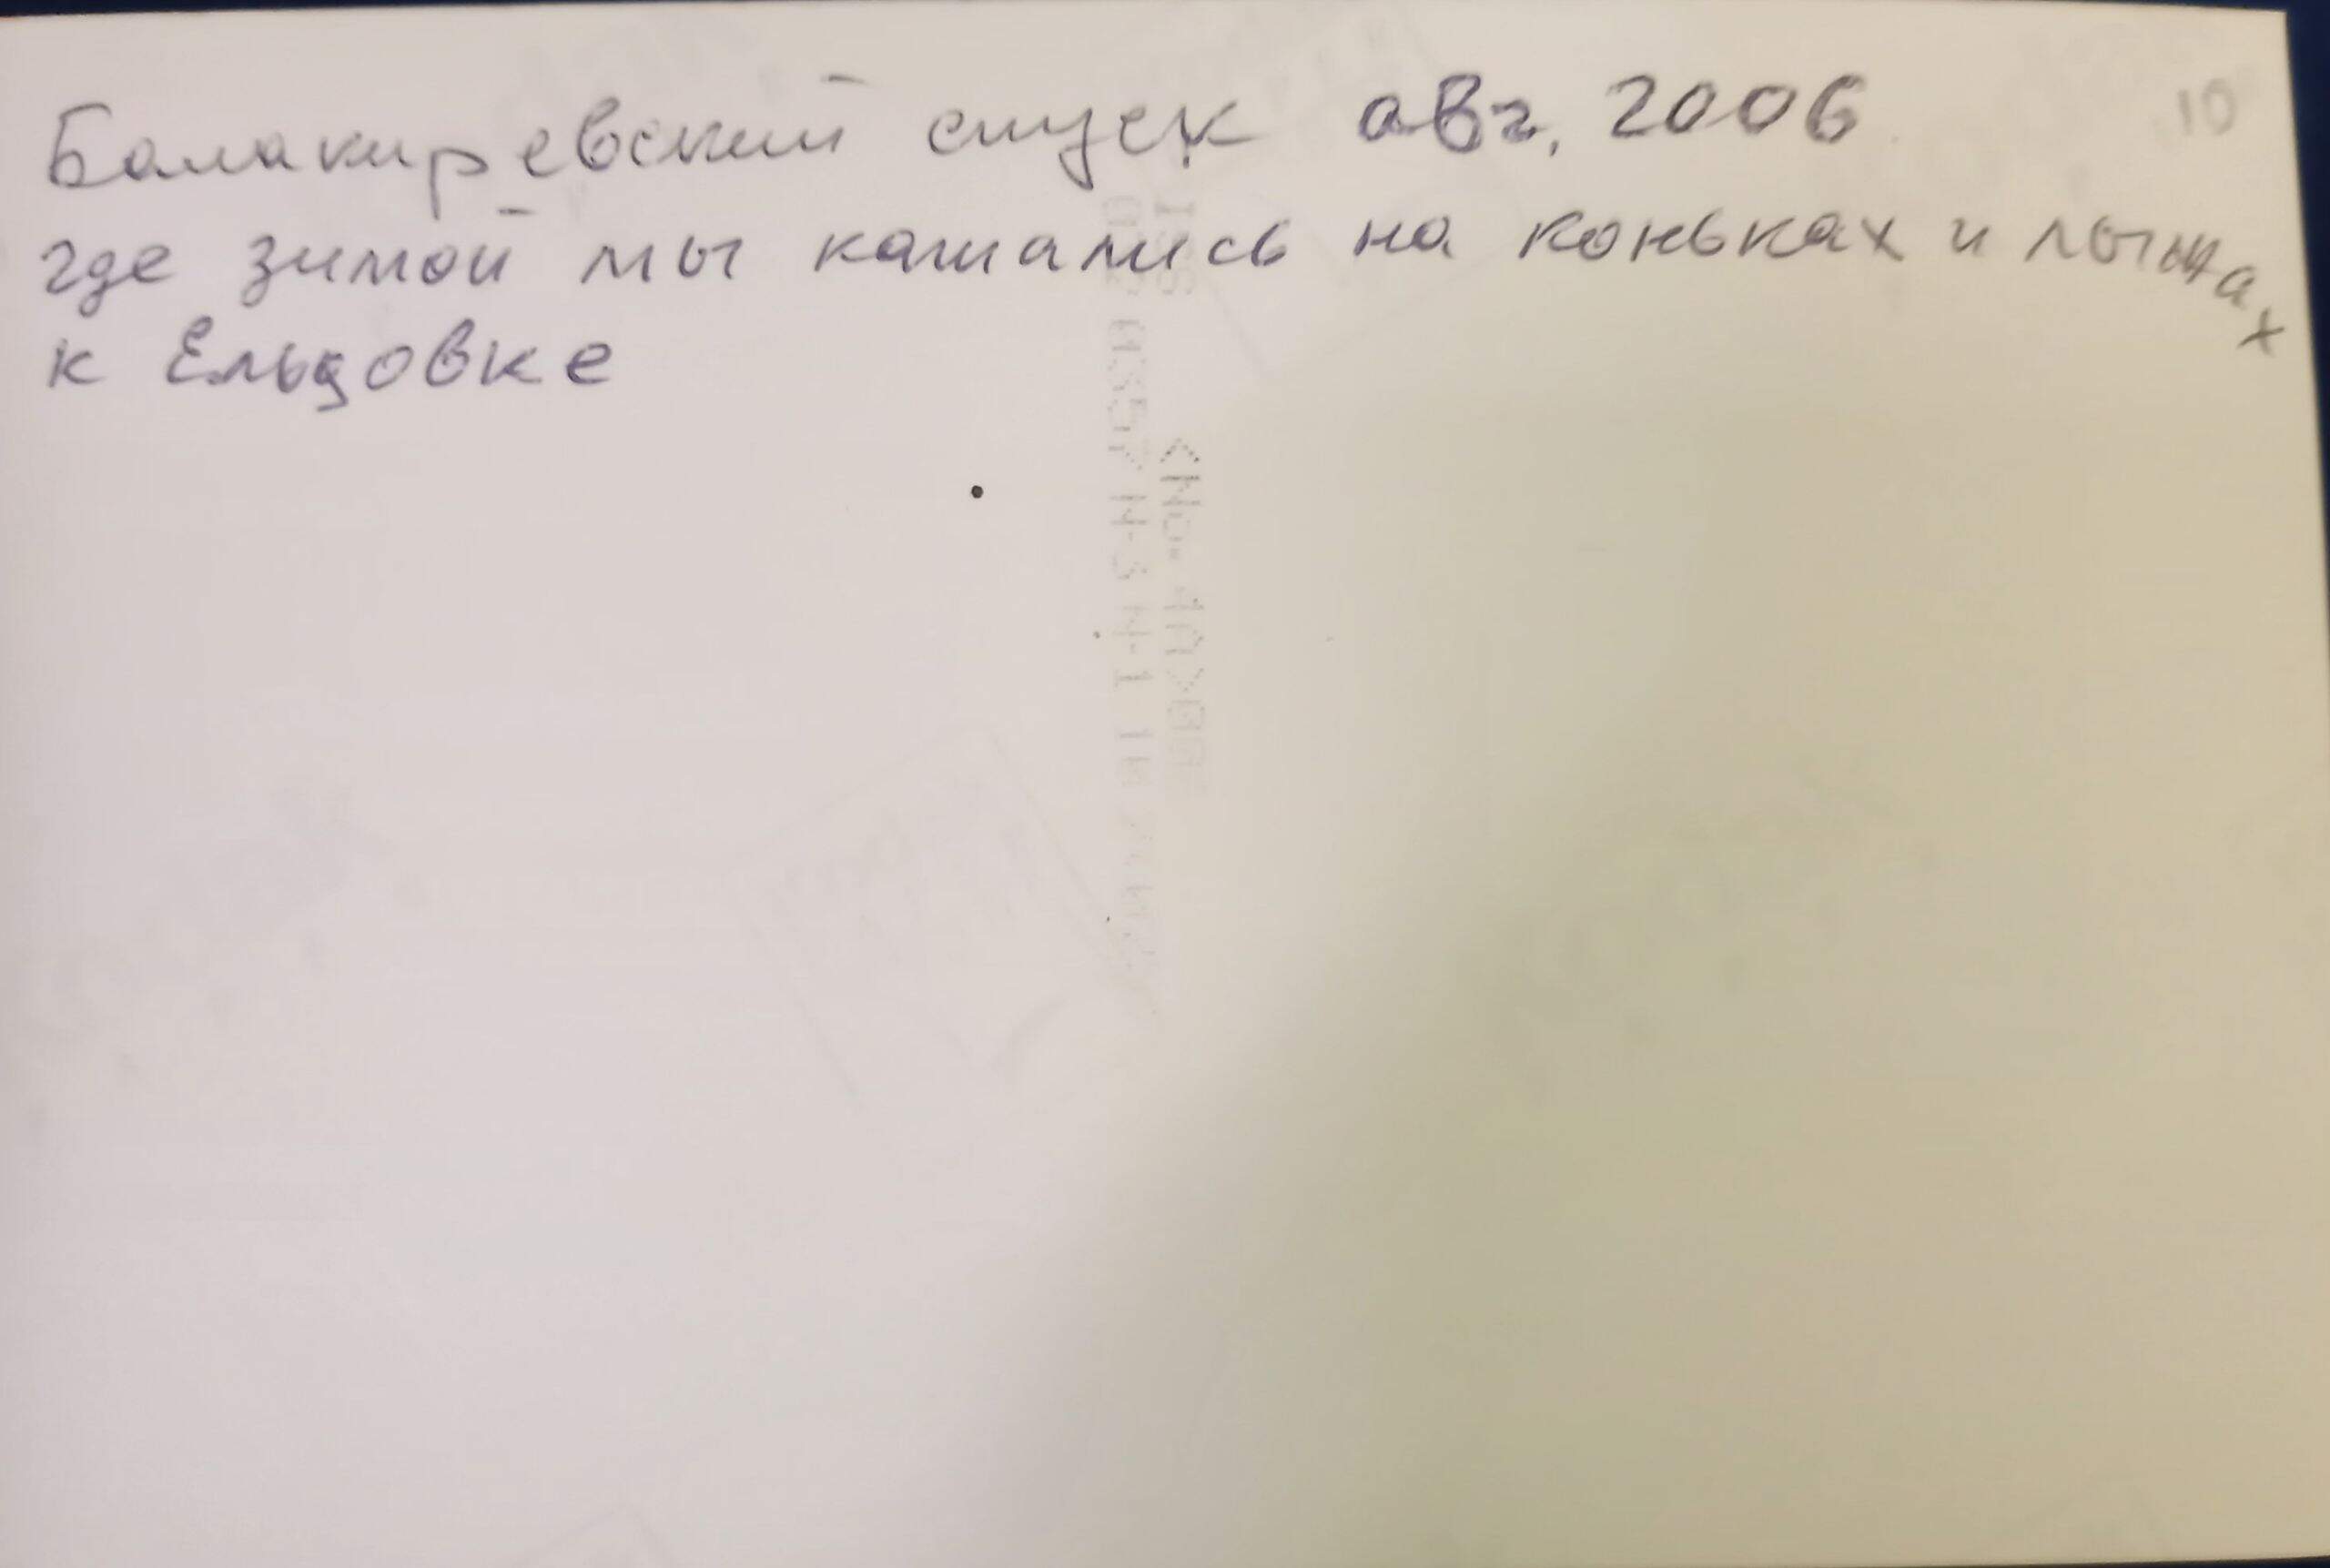 Балакиревский спуск авг. 2006
10
где зимой мы катались на коньках и лыжах
к Ельцовке